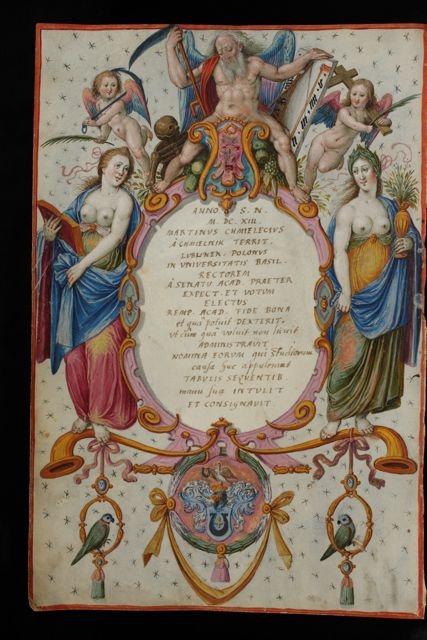 ANNO S. N.
M. DC. XIII.
MARTINUS CHMIELECIUS
À CHMIELNIK TERRIT.
LUBLINEN. POLONUS
IN UNIVERSITATIS BASIL.
RECTOREM
À SENATU ACAD. PRAETER
EXPECT. ET VOTUM
ELECTUS
REMP. ACAD. FIDE BONA
et qua potuit DEXTERIT.
ut cum qua voluit non licuit
ADMINISTRAVIT
NOMINA EORUM qui studiorum
causa huc appulerunt
TABULIS SEQUENTIB.
manu sua INTULIT
ET CONSIGNAVIT.